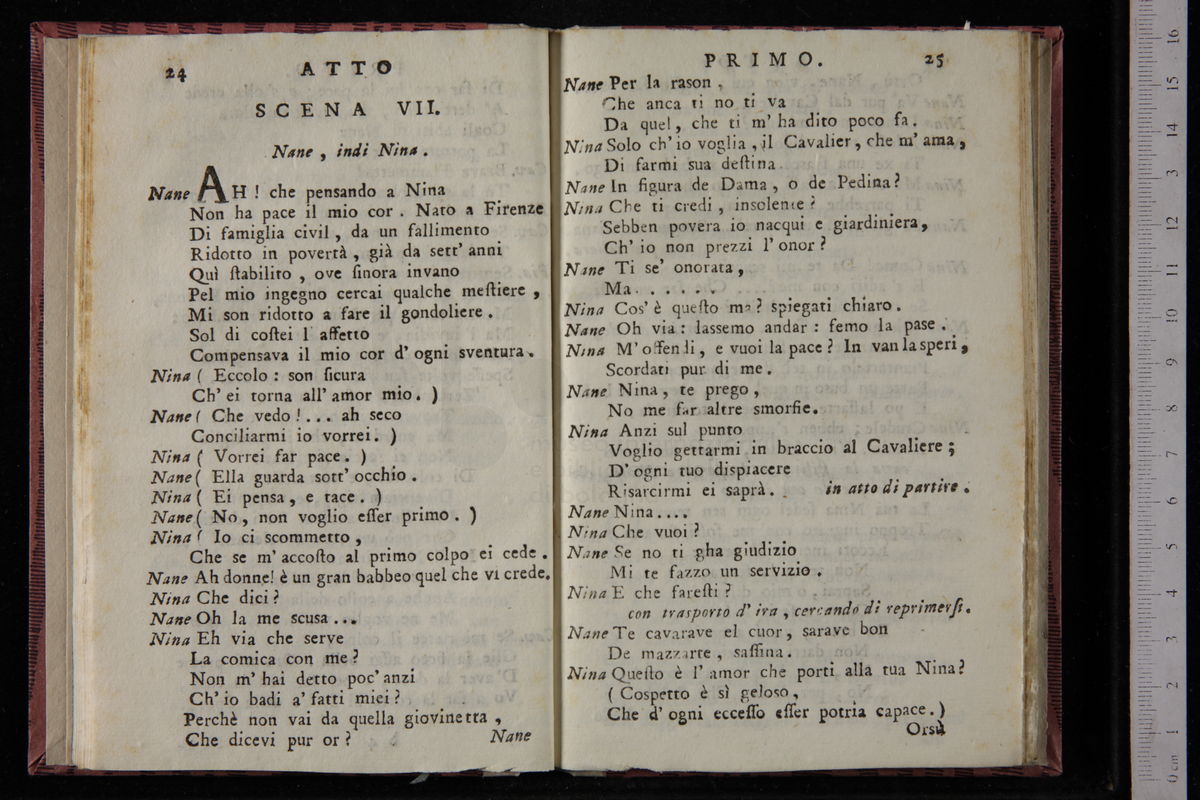 24 ATTO
SCENA VII.
Nane , indi Nina .
Nane AH ! che pensando a Nina
Non ha pace il mio cor . Nato a Firenze
Di famiglia civil , da un fallimento
Ridotto in povertà , già da sett' anni
Quì ſtabilito , ove ſinora invano
Pel mio ingegno cercai qualche meſtiere ,
Mi son ridotto a fare il gondoliere .
Sol di coſtei l' affetto
Compensava il mio cor d' ogni sventura .
Nina ( Eccolo : son ſicura
Ch' ei torna all' amor mio . )
Nane ( Che vedo ! ... ah seco
Conciliarmi io vorrei . )
Nina ( Vorrei far pace . )
Nane ( Ella guarda sott' occhio .
Nina ( Ei pensa , e tace . )
Nane ( No , non voglio eſſer primo . )
Nina ( Io ci scommetto ,
Che se m' accoſto al primo colpo ei cede .
Nane Ah donne! è un gran babbeo quel che vi crede.
Nina Che dici ?
Nane Oh la me scusa ...
Nina Eh via che serve
La comica con me ?
Non m' hai detto poc' anzi
Ch' io badi a' fatti miei ?
Perchè non vai da quella giovinetta ,
Che dicevi pur or ?
Nane
PRIMO. 25
Nane Per la rason ,
Che anca ti no ti va
Da quel , che ti m' ha dito poco fa .
Nina Solo ch' io voglia , il Cavalier , che m' ama ,
Di farmi sua deſtina .
Nane In figura de Dama , o de Pedina ?
Nina Che ti credi , insolente ?
Sebben povera io nacqui e giardiniera ,
Ch' io non prezzi l' onor ?
Nane Ti se' onorata ,
Ma . . . . . .
Nina Cos' è queſto ma ? spiegati chiaro .
Nane Oh via : lassemo andar : femo la pase .
Nina M' offendi , e vuoi la pace ? In van la speri ,
Scordati pur di me .
Nane Nina , te prego ,
No me far altre smorfie .
Nina Anzi sul punto
Voglio gettarmi in braccio al Cavaliere ;
D' ogni tuo dispiacere
Risarcirmi ei saprà . in atto di partire .
Nane Nina ....
Nina Che vuoi ?
Nane Se no ti gha giudizio
Mi te fazzo un servizio .
Nina E che fareſti ?
con trasporto d' ira , cercando di reprimerſi .
Nane Te cavarave el cuor , sarave bon
De mazzarte , saſſina .
Nina Queſto è l' amor che porti alla tua Nina ?
( Cospetto è sì geloso ,
Che d' ogni ecceſſo eſſer potria capace . )
Orsù